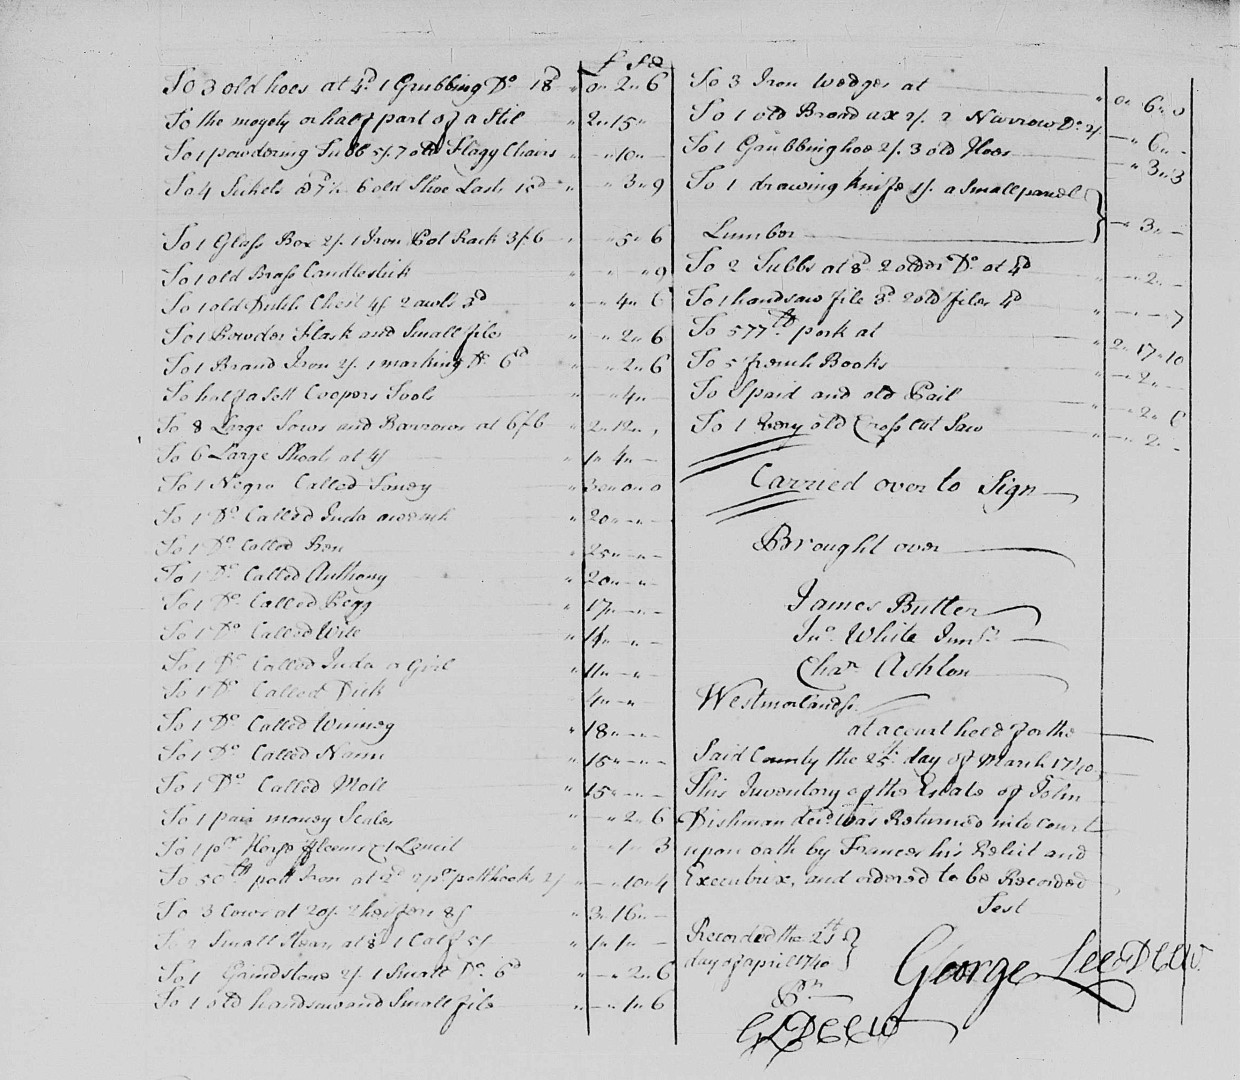 £ s d
To 3 old hoes at 4d 1 Grubbing Do 18d " 0 " 2 " 6
To the moyety or half part of a Stil " 2 " 15 "
To 1 powdering Tubb 5/ 7 old Flagy Chairs " — " 10 " —
To 4 Sickels 6 old Shoe Lasts " — " 3 " 9
To 1 Glass Box 2/ 1 Iron Pot Rack 3/6 " — " 5 " 6
To 1 old Brass Candlestick " — " — " 9
To 1 old Dutch Chest 4/ 2 awls 3d " — " 4 " 6
To 1 Powder Flask and Small files " — " 2 " 6
To 1 Brand Iron 2/ 1 marking Do 6d " — " 2 " 6
To half a Sett Coopers Tools " — " 4 " —
To 8 Large Sows and Barrows at 6/6 " 2 " 12 " ,
To 6 Large Shoats at 4/ " 1 " 4 " —
To 1 Negro Called " 30 " 0 " 0
To 1 Do Called Juda " 20 " — " —
To 1 Do Called Ben " 25 " — " —
To 1 Do Called Anthony " 20 " — " —
To 1 Do Called Pegg " 17 " — " —
To 1 Do Called Will " 14 " — " —
To 1 Do Called Juda a Girl " 11 " — " —
To 1 Do Called Dick " 4 " — " —
To 1 Do Called Winney " 18 " — " —
To 1 Do Called Nann " 15 " — " —
To 1 Do Called Moll " 15 " — " —
To 1 pair money Scales " — " 2 " 6
To 1 pr Horse fleems & 1 " — " 1 " 3
To 50lb pott Iron at 2d 2 pr potthooks 2/ " — " 10 " 4
To 3 Cows at 20/ 2 heifers 8/ " 3 " 16 " —
To 2 Small Stears at 8/ 1 Calf 5/ " 1 " 1 " —
To 1 Grindstone 2/ 1 Small Do 6d " — " 2 " 6
To 1 old handsaw and Small file " — " 1 " 6
To 3 Iron Wedges at " 0 " 6 " 0
To 1 old Broad ax 2/ 2 Narrow Do 2/ — " 6 " —
To 1 Grubbing hoe 2/ 3 old Hoes — " 3 " 3
To 1 drawing knife 1/ a Small parcel
Lumber } — " 3 " —
To 2 Tubbs at 8d 2 older Do at 4d " — " 2 " —
To 1 handsaw file 3d 2 old files 4d " — " — " 7
To 577lb pork at " 2 " 17 " 10
To 5 french Books " — " 2 " —
To Spaid and old Pail " — " 2 " 6
To 1 Very old Cross cut Saw " — " 2 " —
Carried over to Sign
Brought over
James Butler
Jno. White Junr.
Chas Ashton
Westmorland sc.
at a court held for the
Said County the 25th day of March 1740
This Inventory of the Estate of John
Dishman decd. was Returned into Court
upon oath by Frances his Relict and
Executrix, and ordered to be Recorded
Test
Recorded the
day of april 1740 }
George Lee D C C W
Pr
G L D C C W